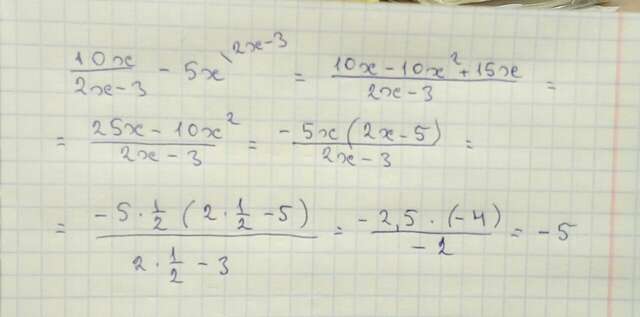 10x/(2x-3) - 5x^(2x-3 = (10x-10x²+15x)/(2x-3) =
= (25x-10x²)/(2x-3) = -5x(2x-5)/(2x-3) =
= (-5·1/2 (2·1/2-5))/(2·1/2-3) = (-2,5·(-4))/(-2) = -5